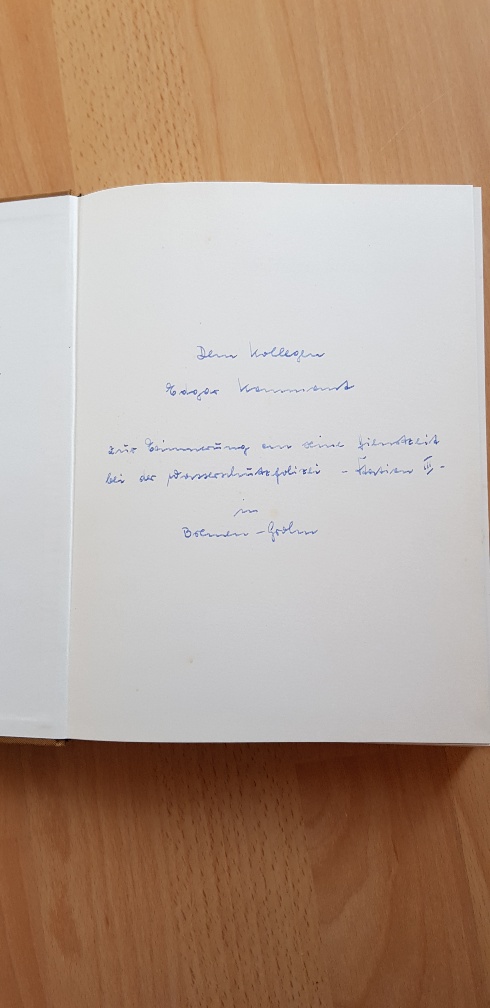 Dem Kollegen
Edgar
zur Erinnerung an seine Dienstzeit
bei der Wasserschutzpolizei - Station II -
in
Bremen-Grohn